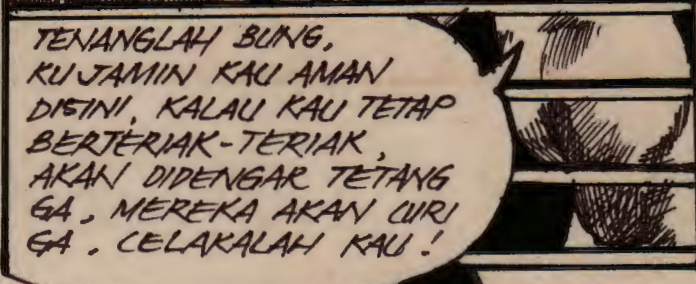 TENANGLAH BUNG,
KUJAMIN KAU AMAN
DISINI. KALAU KAU TETAP
BERTERIAK-TERIAK,
AKAN DIDENGAR TETANG
GA. MEREKA AKAN CURI
GA. CELAKALAH KAU!